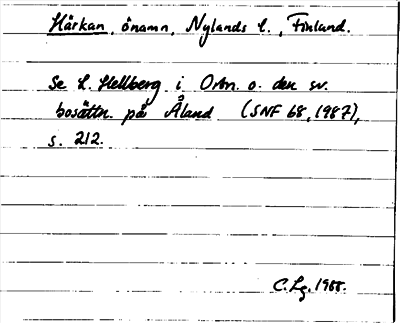 Härkan, önamn, Nylands l., Finland.
Se L. Hellberg i Ortn. o. den sv.
bosättn. på Åland (SNF 68, 1987),
s. 212.
C. Lg. 1988.